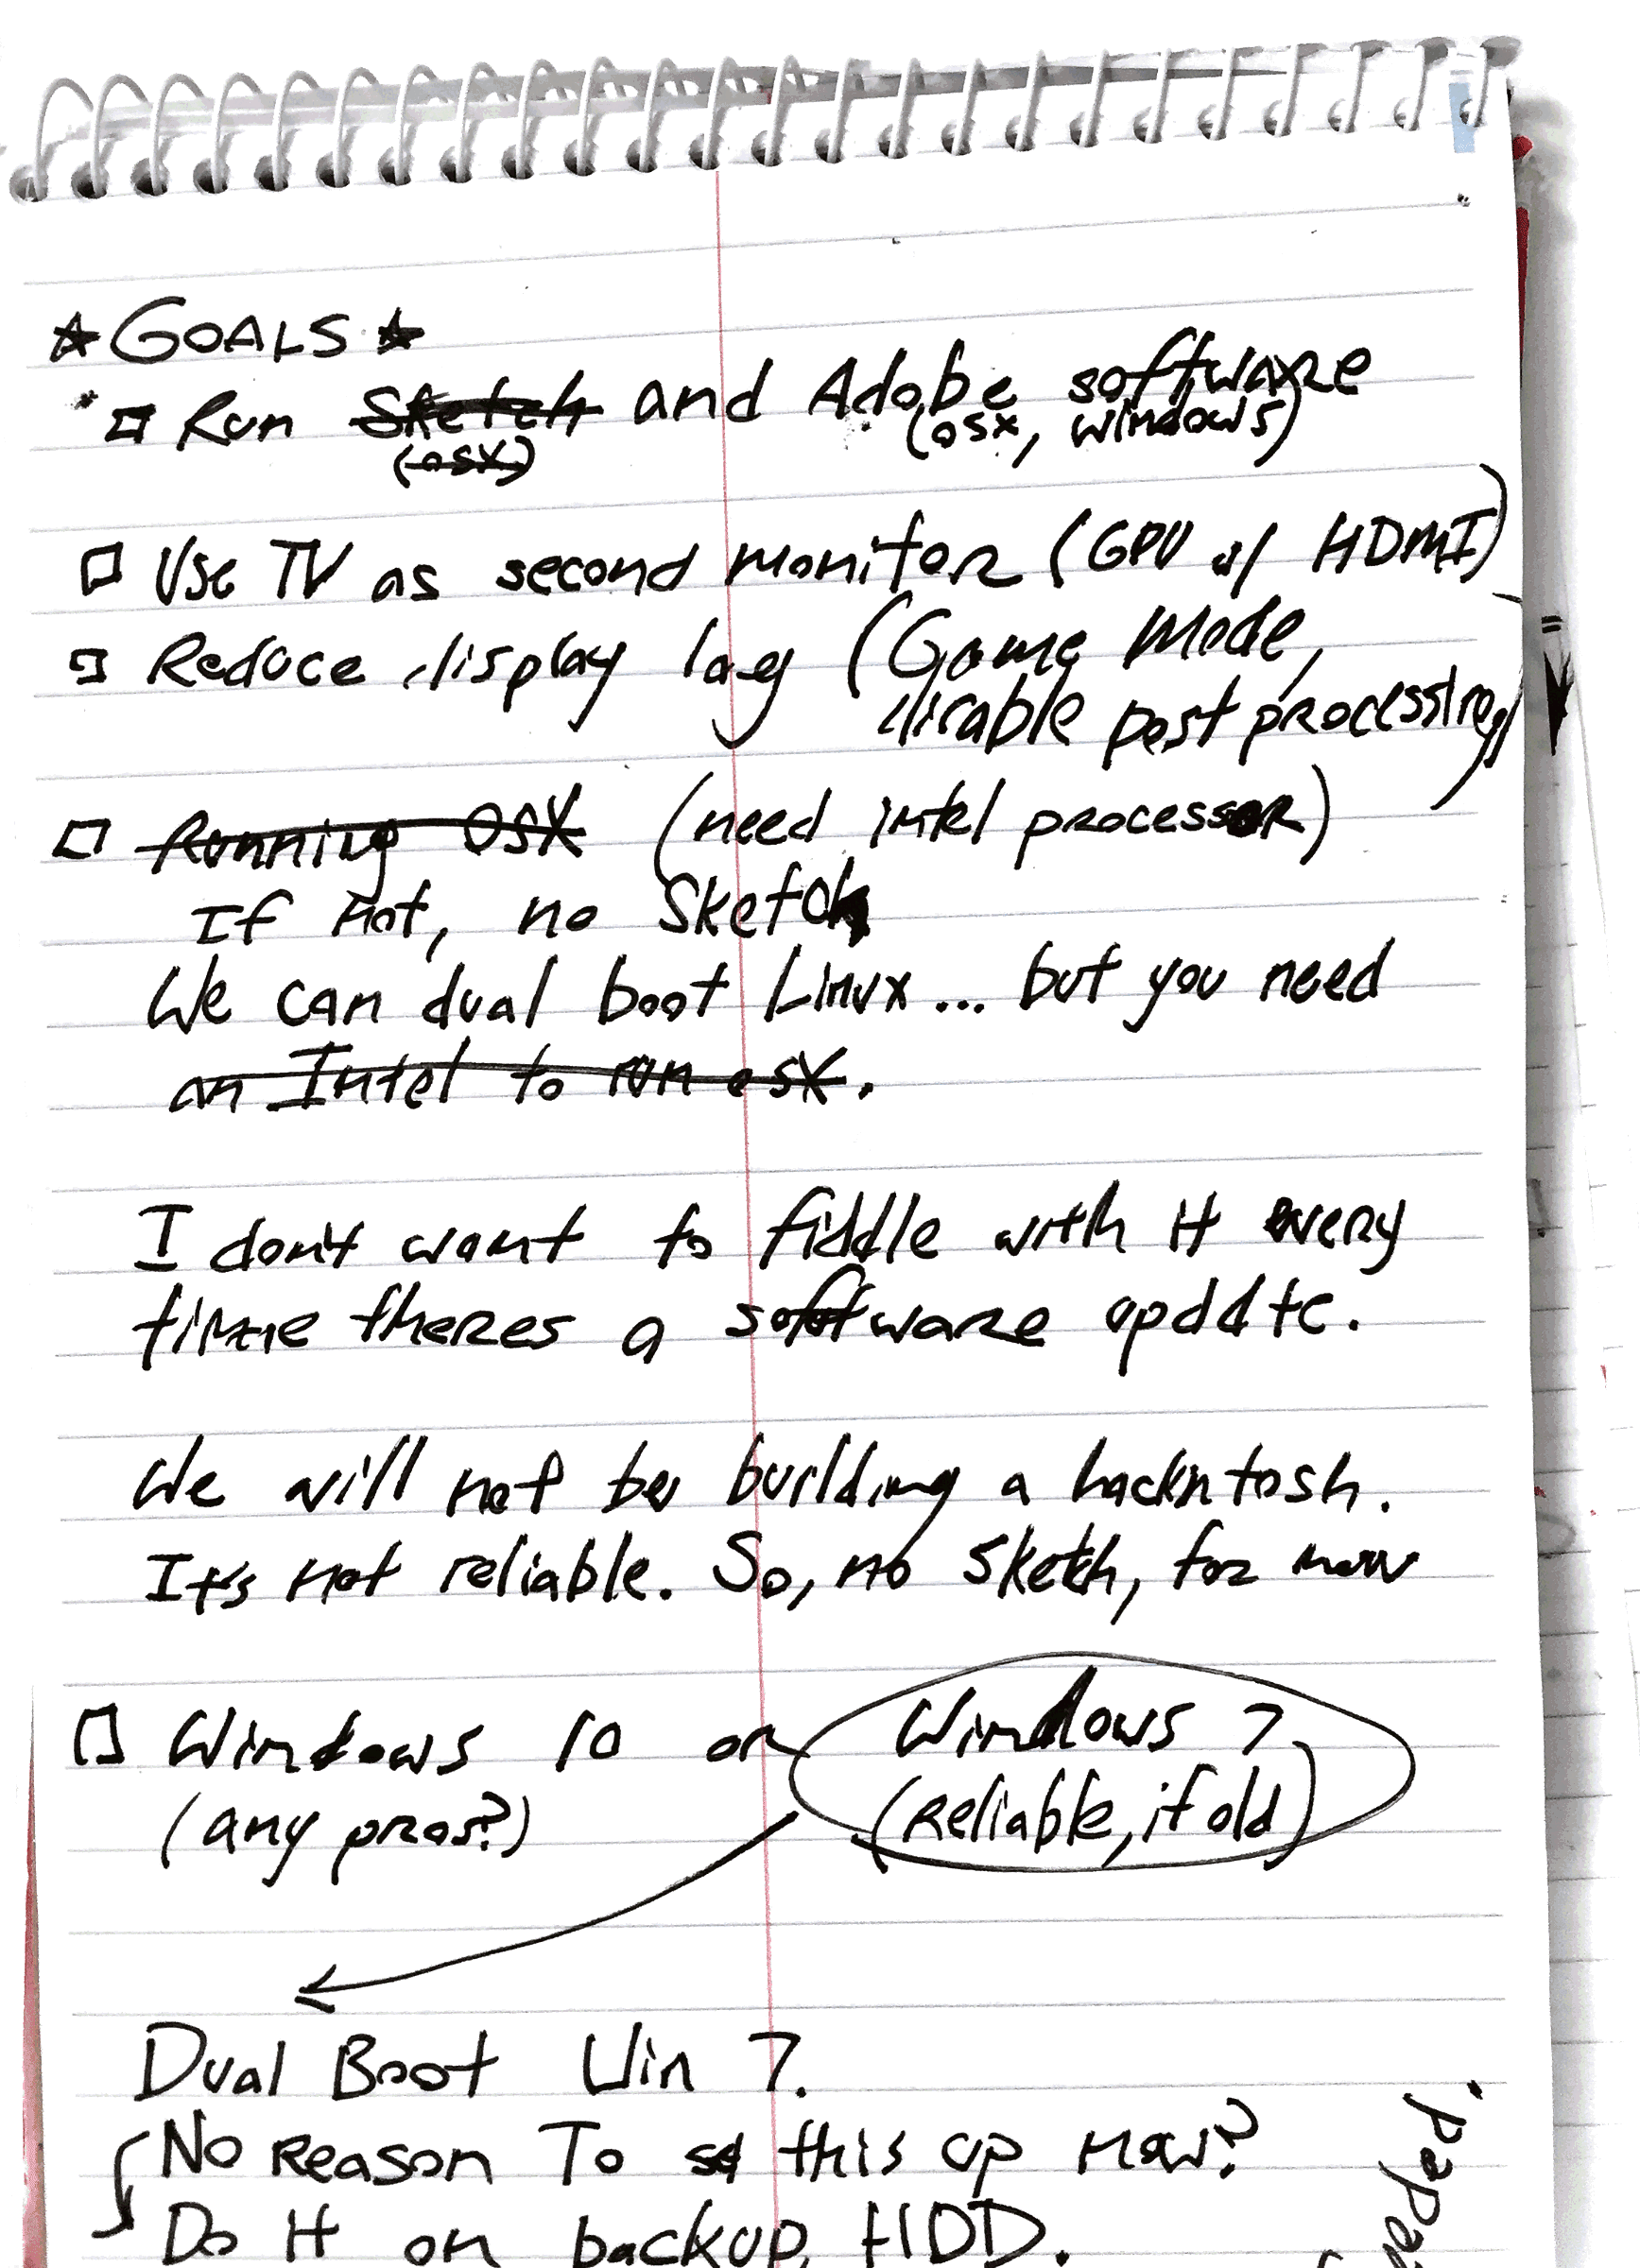 ☆ GOALS ☆
□ Run Sketch and Adobe software
(OSX) (OSX, Windows)
□ Use TV as second monitor (GPU w/ HDMI)
□ Reduce display lag (Game Mode,
disable post processing)
□ Running OSX (need intel processor)
If not, no Sketch
We can dual boot Linux... but you need
an Intel to run OSX.
I don't want to fiddle with it every
time theres a software update.
We will not be building a hackintosh.
It's not reliable. So, no Sketch, for now
□ Windows 10 or Windows 7
(any pros?) (Reliable, if old)
Dual Boot Win 7.
No Reason To set this up now?
Do it on backup HDD.